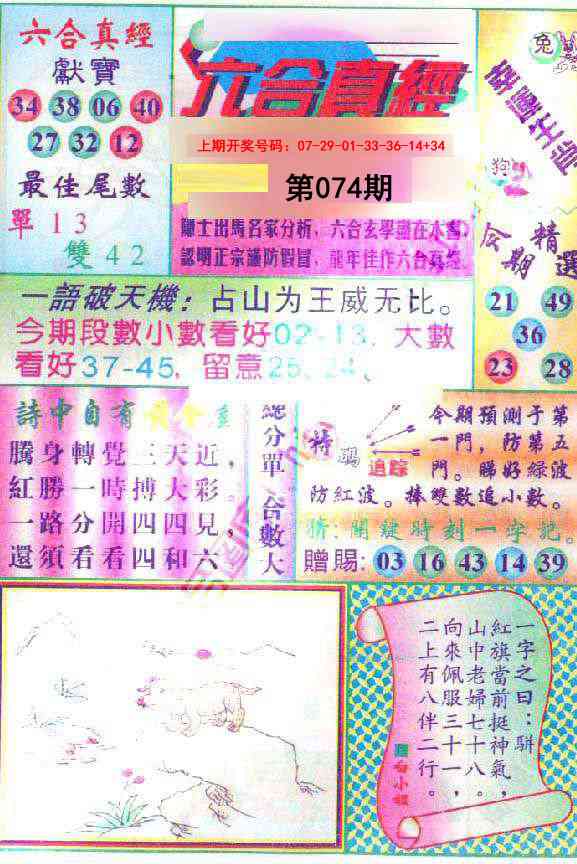 六合真經
獻寶
34 38 06 40
27 32 12
最佳尾數
單13
雙42
六合真經
上期开奖号码：07-29-01-33-36-14+34
第074期
隱士出馬名家分析，六合玄學謎在本書，
認明正宗謹防假冒，龍年佳作六合真經.
兔
幸運生肖
狗
今期精選
21 49
36
23 28
一語破天機：占山为王威无比。
今期段數小數看好02-13，大數
看好37-45，留意25、24、
詩中自有黃金屋
騰身轉覺三天近，
紅勝一時搏大彩。
一路分開四四兒，
還須看看四和六
總分單
合數大
特碼
追踪
今期預測于第
一門，防第五
門。睇好綠波
防紅波。捧雙數追小數。
猜：關鍵時刻一字記。
贈賜：03 16 43 14 39
一字之曰：駢
紅旗當前挺神氣，
山中老婦七十八。
向來佩服三十一，
二上有八伴二行。